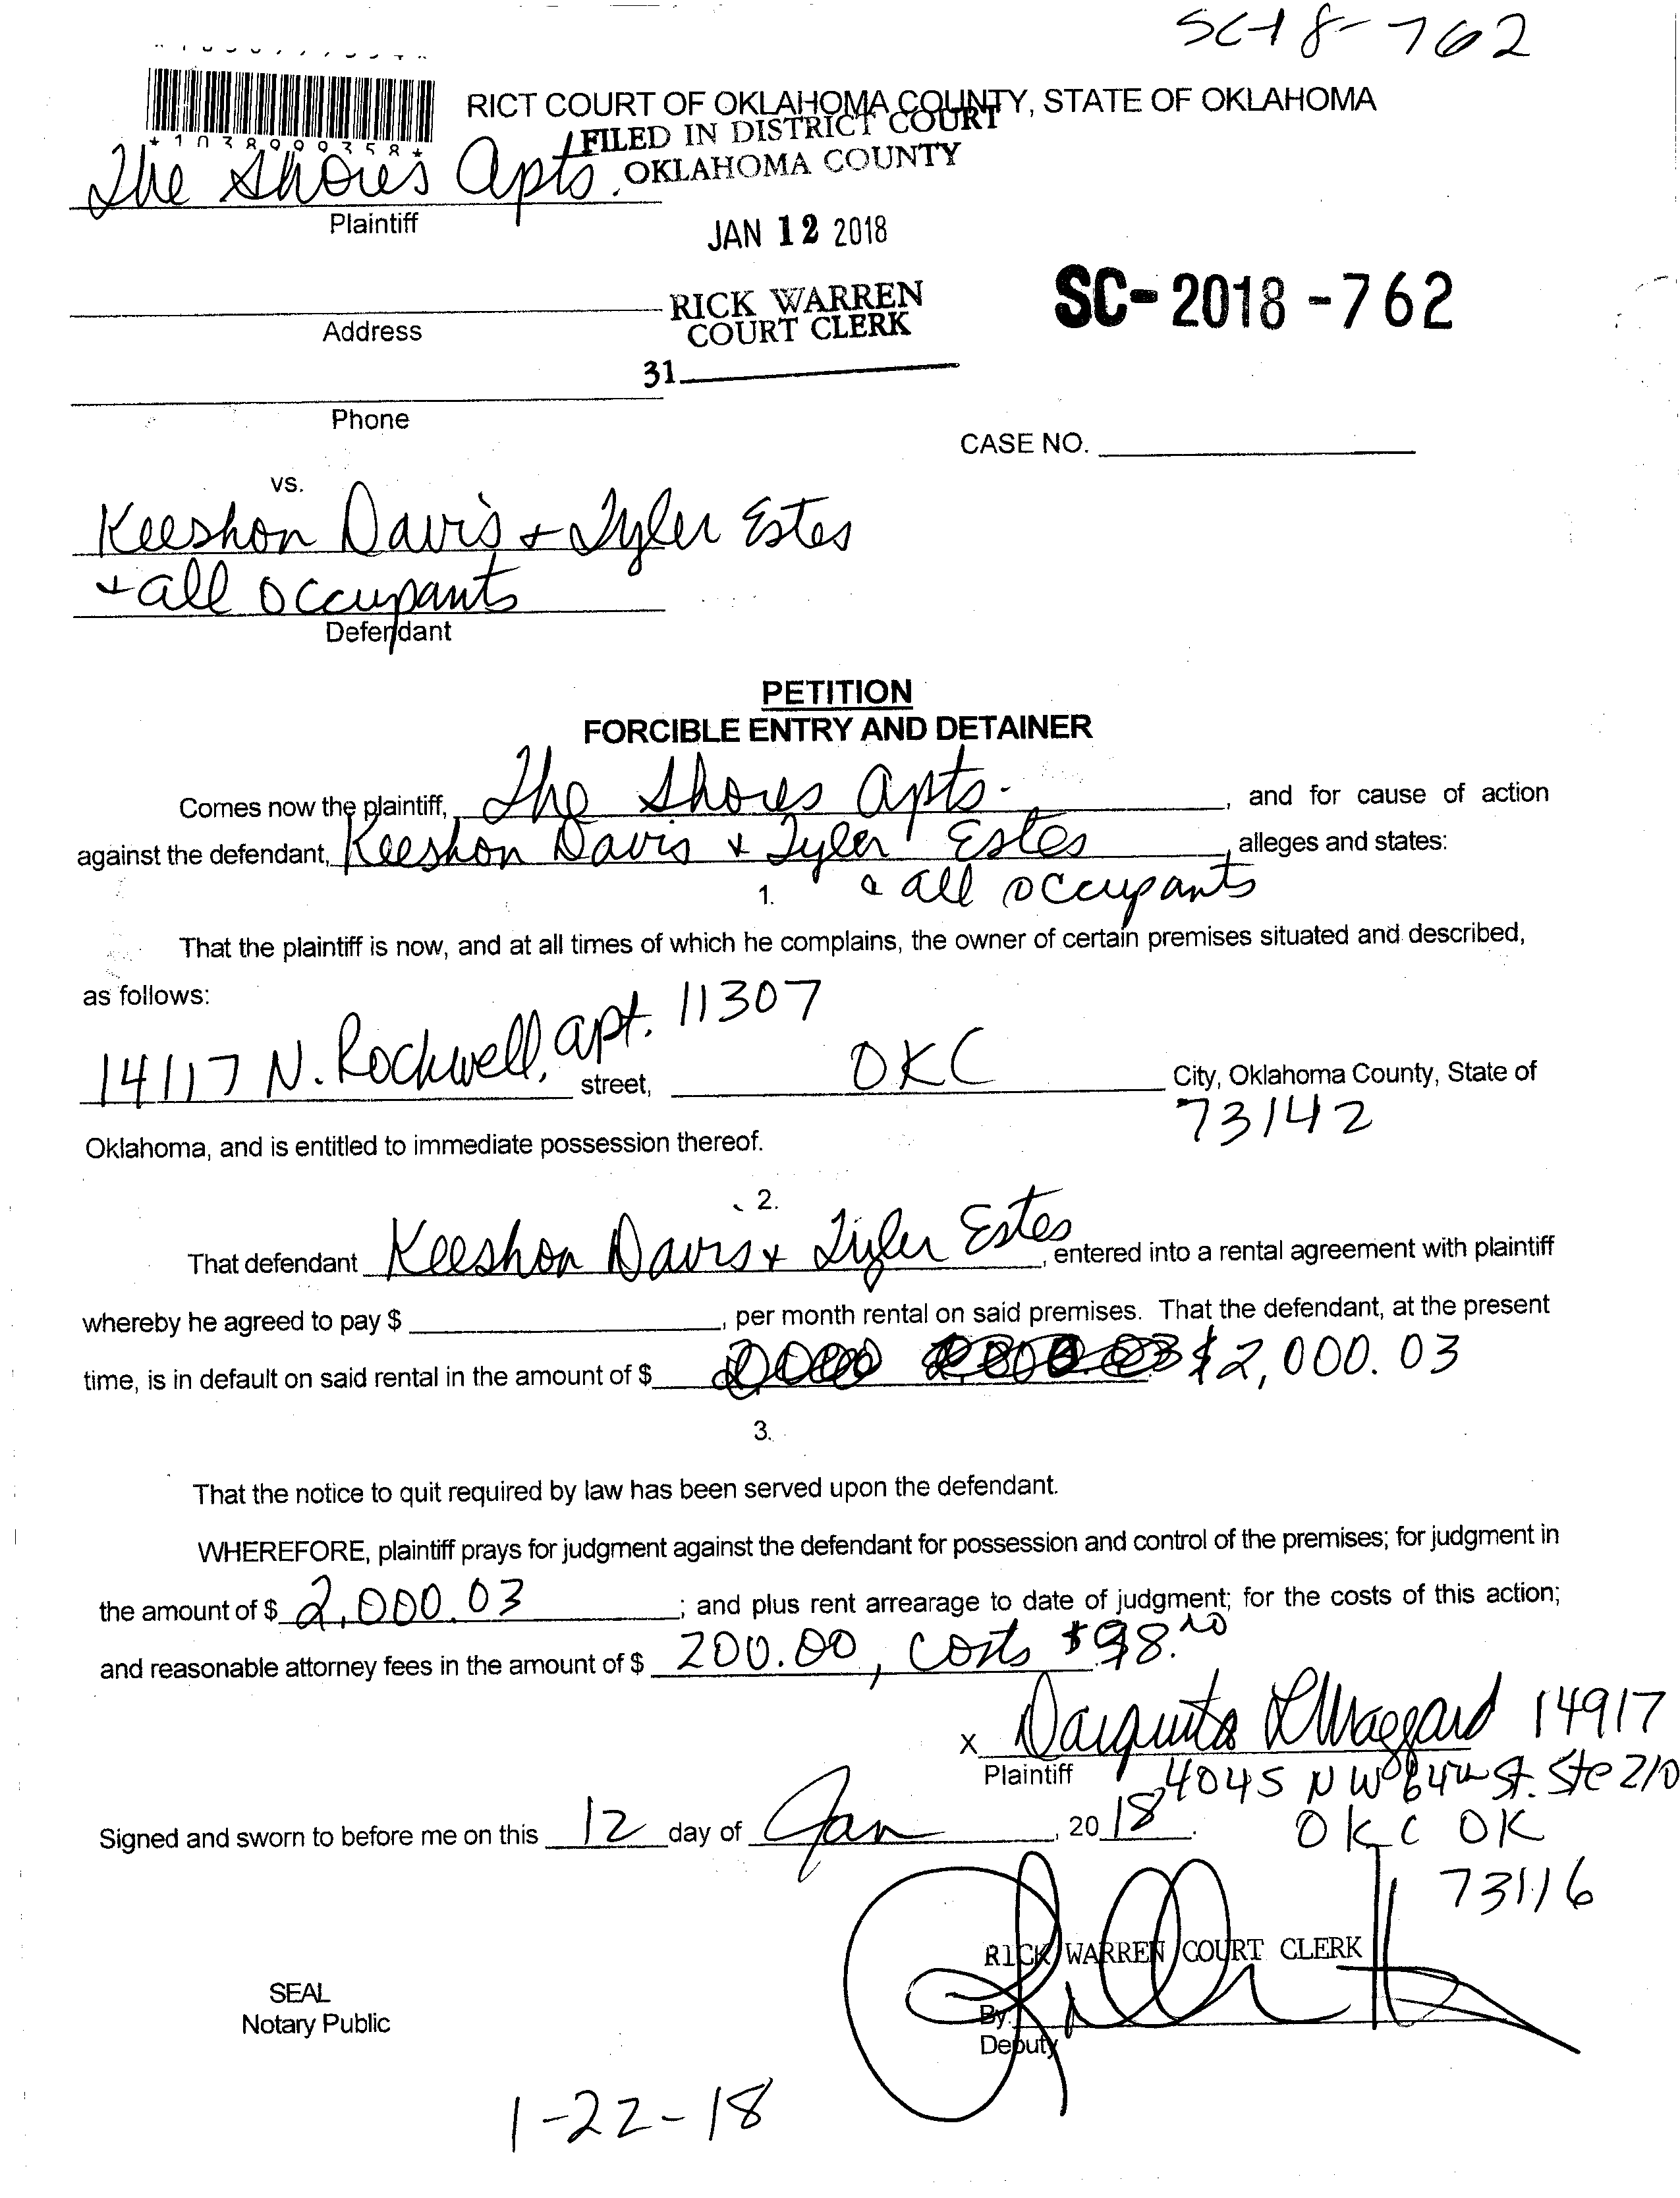 SC-18-762
RICT COURT OF OKLAHOMA COUNTY, STATE OF OKLAHOMA
FILED IN DISTRICT COURT
OKLAHOMA COUNTY
*1038999358*
The Shores Apts.
Plaintiff
JAN 12 2018
RICK WARREN
COURT CLERK
SC-2018-762
Address
31
Phone
CASE NO.
vs.
Keeshon Davis + Tyler Estes
+ all occupants
Defendant
PETITION
FORCIBLE ENTRY AND DETAINER
Comes now the plaintiff, The Shores Apts. , and for cause of action
against the defendant, Keeshon Davis + Tyler Estes , alleges and states:
1. & all occupants
That the plaintiff is now, and at all times of which he complains, the owner of certain premises situated and described,
as follows:
14117 N. Rockwell, apt. 11307 street, OKC City, Oklahoma County, State of
73142
Oklahoma, and is entitled to immediate possession thereof.
2.
That defendant Keeshon Davis + Tyler Estes , entered into a rental agreement with plaintiff
whereby he agreed to pay $ , per month rental on said premises. That the defendant, at the present
time, is in default on said rental in the amount of $ $2,000.03
3.
That the notice to quit required by law has been served upon the defendant.
WHEREFORE, plaintiff prays for judgment against the defendant for possession and control of the premises; for judgment in
the amount of $ 2,000.03 ; and plus rent arrearage to date of judgment; for the costs of this action;
and reasonable attorney fees in the amount of $ 200.00, costs $98.20
X Darquita L Maggard 14917
Plaintiff 4045 NW 64th St. Ste 210
Signed and sworn to before me on this 12 day of Jan , 2018. OKC OK
73116
RICK WARREN COURT CLERK
SEAL
Notary Public
By:
Deputy
1-22-18